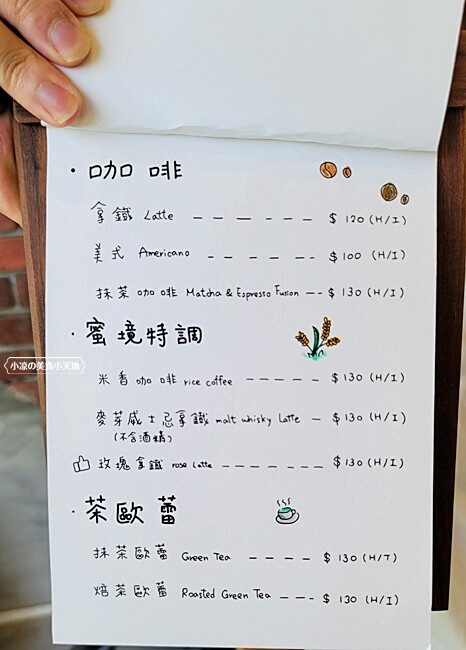 · 咖 啡
拿鐵 Latte — — — — — — $ 120 (H/I)
美式 Americano — — — — — $100 (H/I)
抹茶咖啡 Matcha & Espresso Fusion — — $ 130 (H/I)
· 蜜境特調
小凉の美食小天地
米香咖啡 rice coffee — — — — — $130 (H/I)
麥芽威士忌拿鐵 malt whisky Latte — $130 (H/I)
(不含酒精)
玫瑰拿鐵 rose Latte — — — — — — — $130 (H/I)
· 茶歐蕾
抹茶歐蕾 Green Tea — — — — $ 130 (H/I)
焙茶歐蕾 Roasted Green Tea — — — $ 130 (H/I)